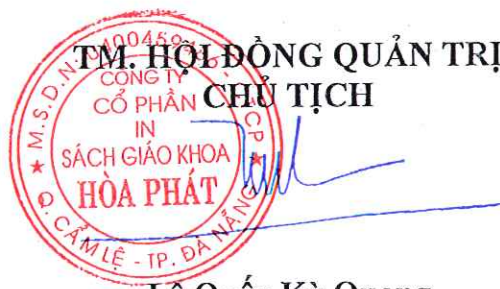 TM. HỘI ĐỒNG QUẢN TRỊ
CHỦ TỊCH
CÔNG TY
CỔ PHẦN
IN
SÁCH GIÁO KHOA
HÒA PHÁT
Q. CẨM LỆ - TP. ĐÀ NẴNG